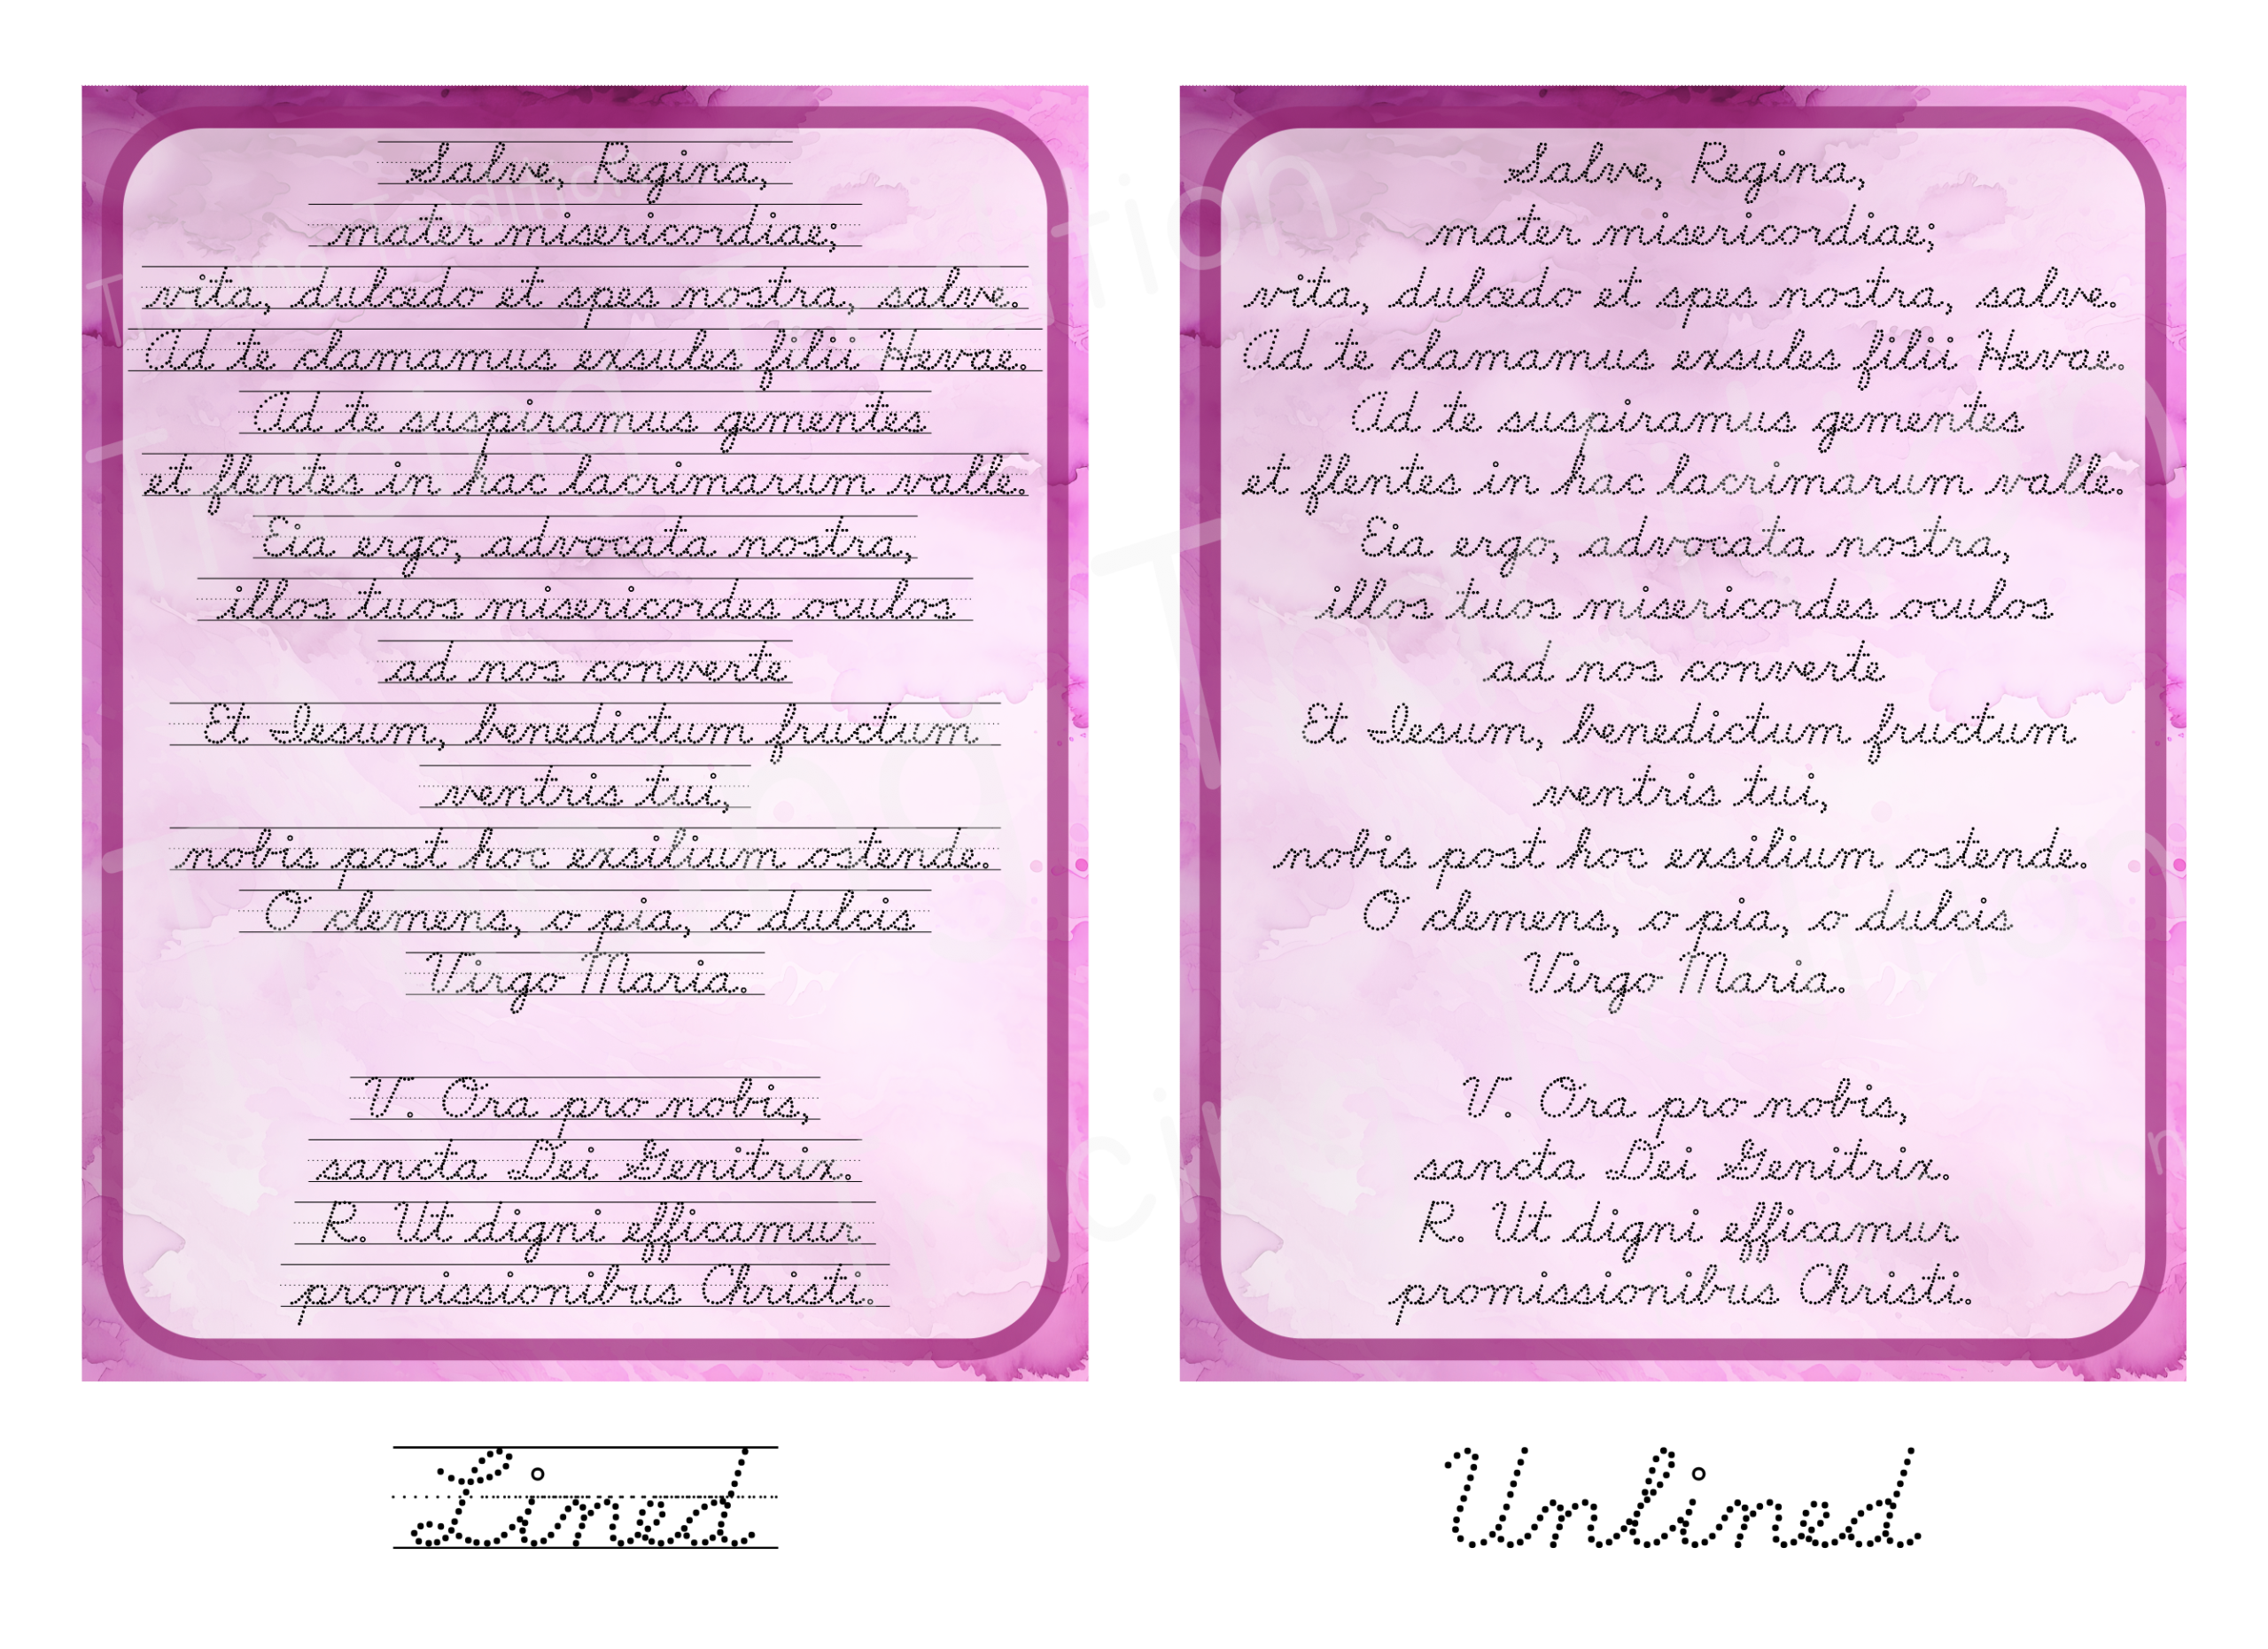 Salve, Regina,
mater misericordiae;
vita, dulcedo et spes nostra, salve.
Ad te clamamus exsules filii Hevae.
Ad te suspiramus gementes
et flentes in hac lacrimarum valle.
Eia ergo, advocata nostra,
illos tuos misericordes oculos
ad nos converte
Et Iesum, benedictum fructum
ventris tui,
nobis post hoc exsilium ostende.
O clemens, o pia, o dulcis
Virgo Maria.
V. Ora pro nobis,
sancta Dei Genitrix.
R. Ut digni efficamur
promissionibus Christi.
Lined
Salve, Regina,
mater misericordiae;
vita, dulcedo et spes nostra, salve.
Ad te clamamus exsules filii Hevae.
Ad te suspiramus gementes
et flentes in hac lacrimarum valle.
Eia ergo, advocata nostra,
illos tuos misericordes oculos
ad nos converte
Et Iesum, benedictum fructum
ventris tui,
nobis post hoc exsilium ostende.
O clemens, o pia, o dulcis
Virgo Maria.
V. Ora pro nobis,
sancta Dei Genitrix.
R. Ut digni efficamur
promissionibus Christi.
Unlined